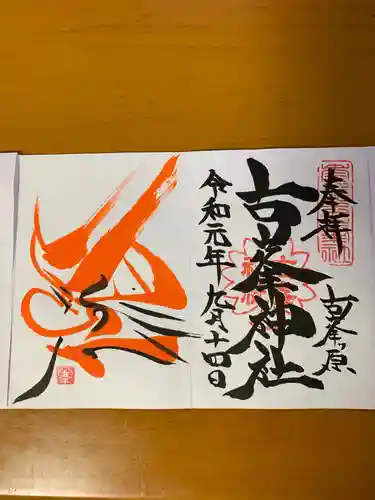 奉拝
古峯ヶ原
古峯神社
令和元年九月十四日